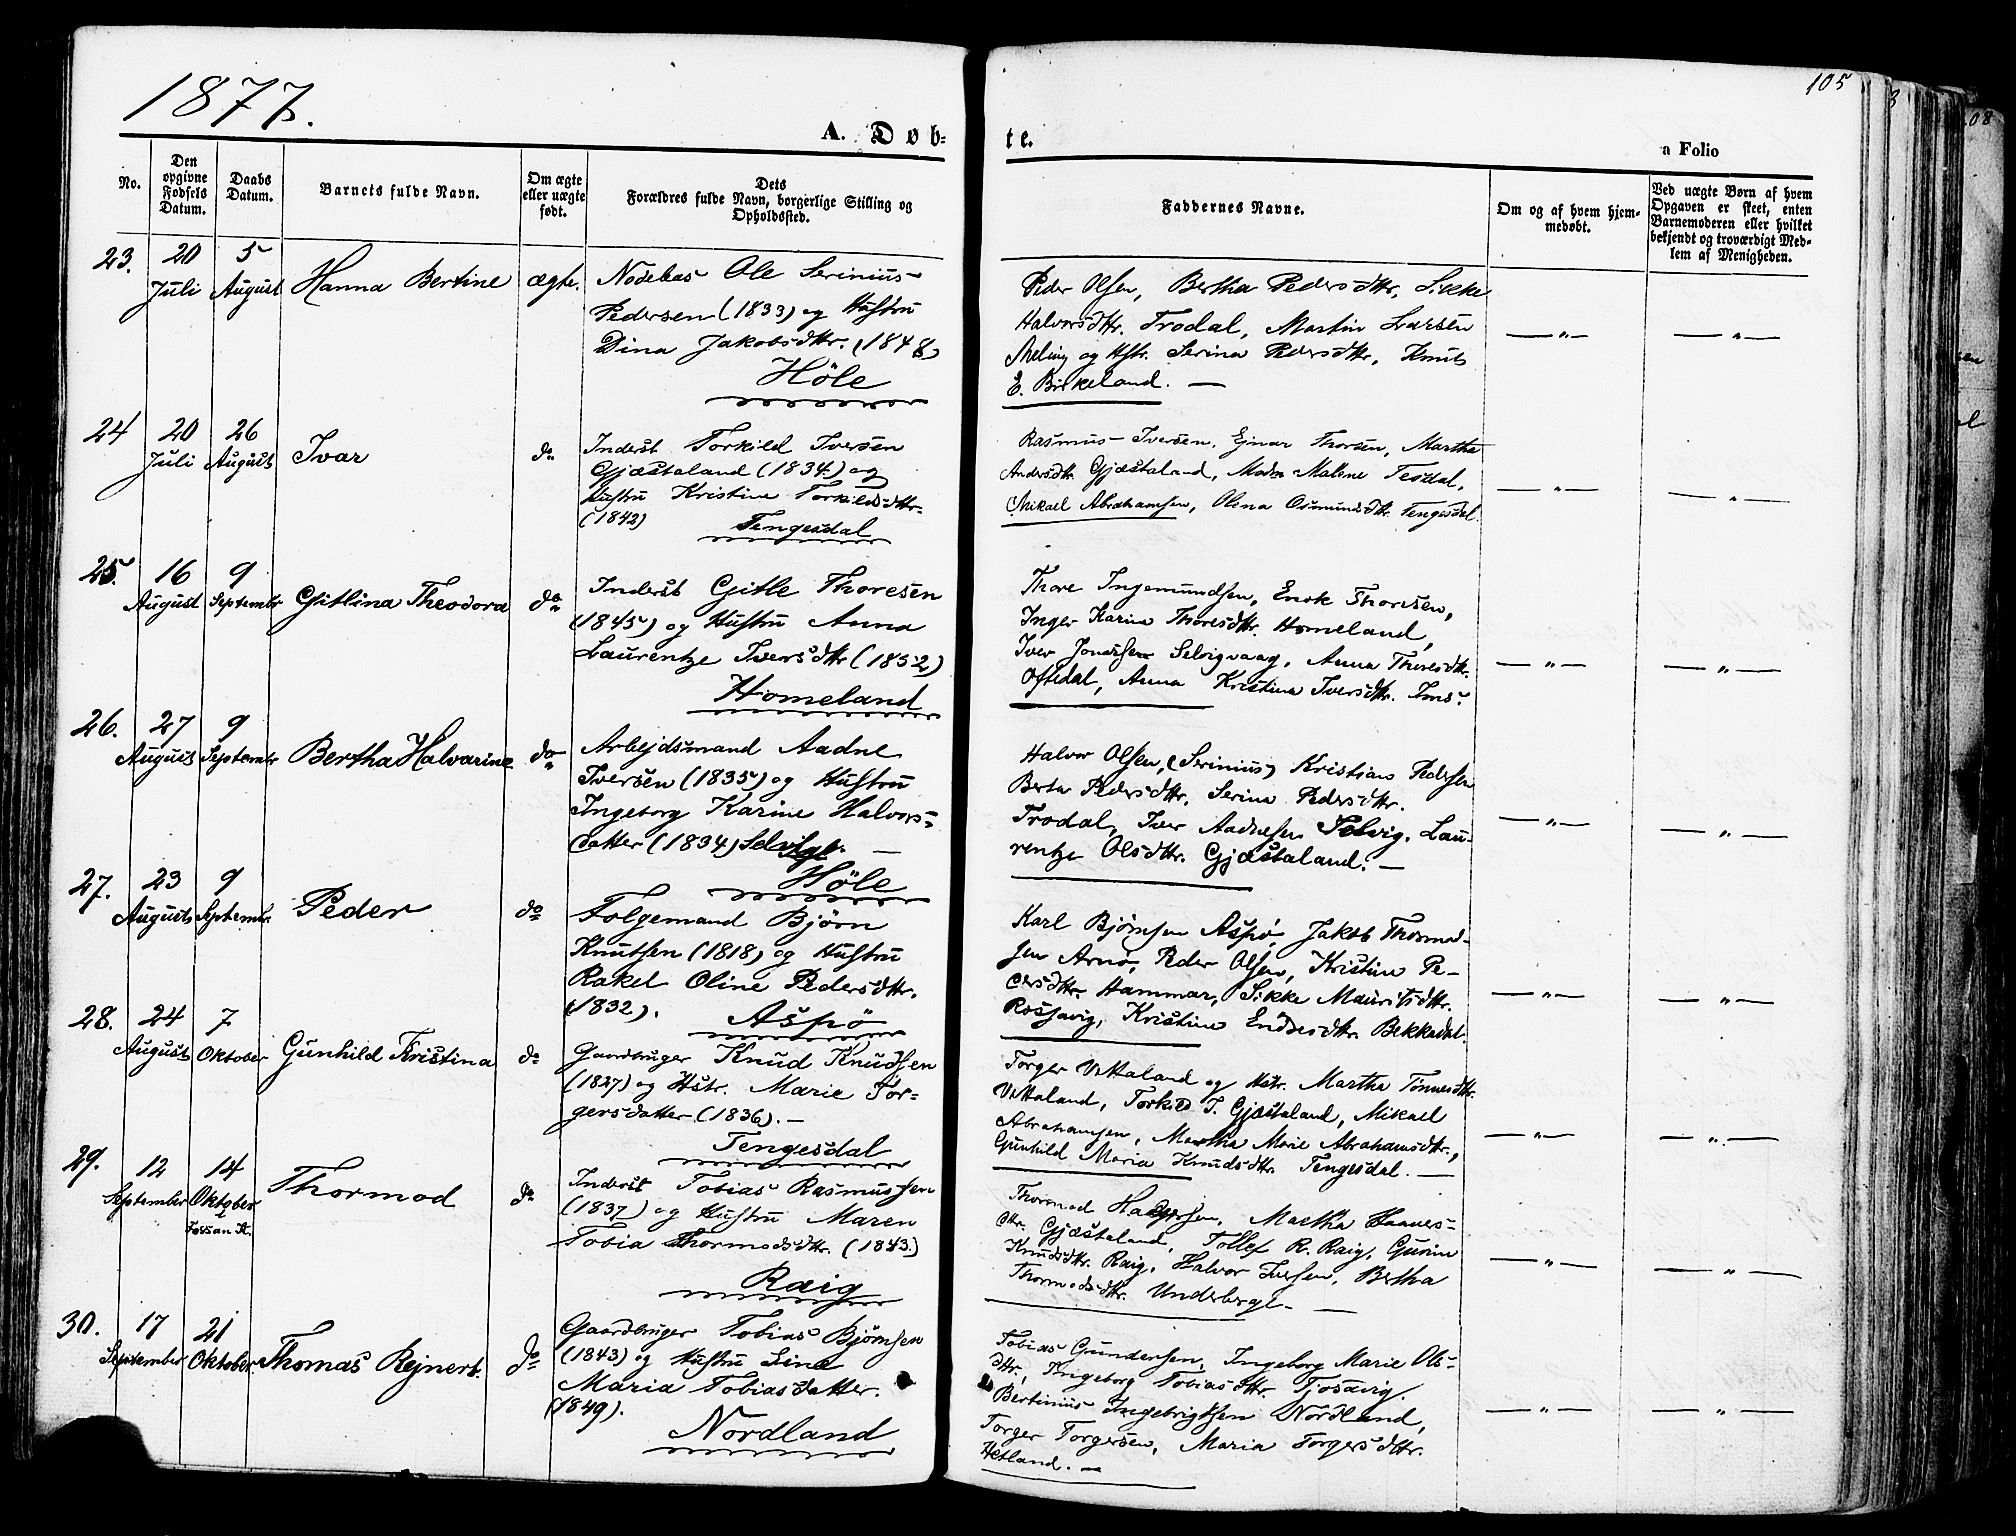 1877.
105
A. Døb-
te.
a Folio
No.
Den opgivne Fødsels Datum.
Daabs Datum.
Barnets fulde Navn.
Om ægte eller uægte født.
Dets Forældres fulde Navn, borgerlige Stilling og Opholdssted.
Faddernes Navne.
Om og af hvem hjemmedøbt.
Ved uægte Børn af hvem Opgaven er skeet, enten Barnemoderen eller hvilket bekjendt og troværdigt Medlem af Menigheden.
23.
20 Juli
5 August
Hanna Bertine
ægte.
Nodebas Ole Serinius
Pedersen (1833) og Hustru
Dina Jakobsdttr. (1848)
Høle
Peder Olsen, Bertha Pedersdttr, Sikke
Halvorsdttr. Trodal, Martin Larsen
Meling og Hstr. Serina Pedersdttr, Knut
E. Birkeland. —
— " —
— " —
24
20 Juli
26 August
Ivar
do
Inderst Torkild Iversen
Gjæstaland (1834) og
Hustru Kristine Torkildsdttr.
(1842)
Tengesdal
Rasmus Iversen, Ejnar Thorsen, Martha
Andersdttr. Gjæstaland, Madm Malene Tesdal,
Mikael Abrahamsen, Olina Osmundsdttr. Tengesdal.
— " —
— " —
25.
16 August
9 Septembr
Gitlina Theodora
do
Inderst Gitle Thoresen
(1845) og Hustru Anna
Laurentze Iversdttr (1852)
Homeland
Thore Ingemundsen, Enok Thoresen,
Inger Karine Thoresdttr. Homeland,
Iver Jonassen Selvigvaag, Anna Thoresdttr.
Oftedal, Anna Kristina Iversdttr. Ims.
— " —
— " —
26.
27 August
9 Septembr
Bertha Halvarine
do
Arbejdsmand Aadne
Iversen (1835) og Hustru
Ingeborg Karine Halvors-
datter (1834) Selvig. —
Høle
Halvor Olsen, (Serinius) Kristian Pedersen
Berta Pedersdttr, Serina Pedersdttr.
Trodal, Iver Aadnesen Selvig, Lau-
rentze Olsdttr. Gjæstaland. —
— " —
— " —
27.
23 August
9 Septembr.
Peder
do
Folgemand Bjørn
Knutsen (1818) og Hustru
Rakel Oline Pedersdttr.
(1832).
Aspø
Karl Bjørnsen Aspø, Jakob Thormod-
sen Arnø, Peder Olsen, Kristine Pe-
dersdttr Hammar, Sikke Mauritsdttr.
Rossavig, Kristine Endresdttr. Bekkedal.
— " —
— " —
28.
24 August
7 Oktober
Gunhild Kristina
do
Gaardbruger Knud Knudsen
(1827) og Hstr. Marie Tor-
gersdatter (1836). —
Tengesdal
Torger Vettaland og Hstr. Martha Tønnesdttr.
Vettaland, Torkild I. Gjæstaland, Mikael
Abrahamsen, Martha Marie Abrahamsdttr.,
Gunhild Maria Knudsdttr. Tengesdal. —
— " —
— " —
29.
12 September
14 Oktober
i Forsan K.
Thormod
do
Inderst Tobias Rasmussen
(1837) og Hustru Maren
Tobia Thormodsdttr. (1843.)
Raig
Thormod Hansen, Martha Haaves-
dttr. Gjæstaland, Tollef R. Raig, Gurine
Knudsdttr. Raig, Halvor Iversen, Bertha
Thormodsdttr. Underberge. —
— " —
— " —
30.
17 September
21 Oktober.
Thomas Rejnert.
do
Gaardbruger Tobias Bjørnsen
(1843) og Hustru Sina
Maria Tobiasdatter.
(1849).
Nordland
Tobias Gundersen, Ingeborg Marie Ols-
dttr., Ingeborg Tobiasdttr. Tjosavig.
Bertinius Ingebrigtsen Nordland,
Torger Torgersen, Maria Torgersdttr.
Hetland. —
— " —
— " —